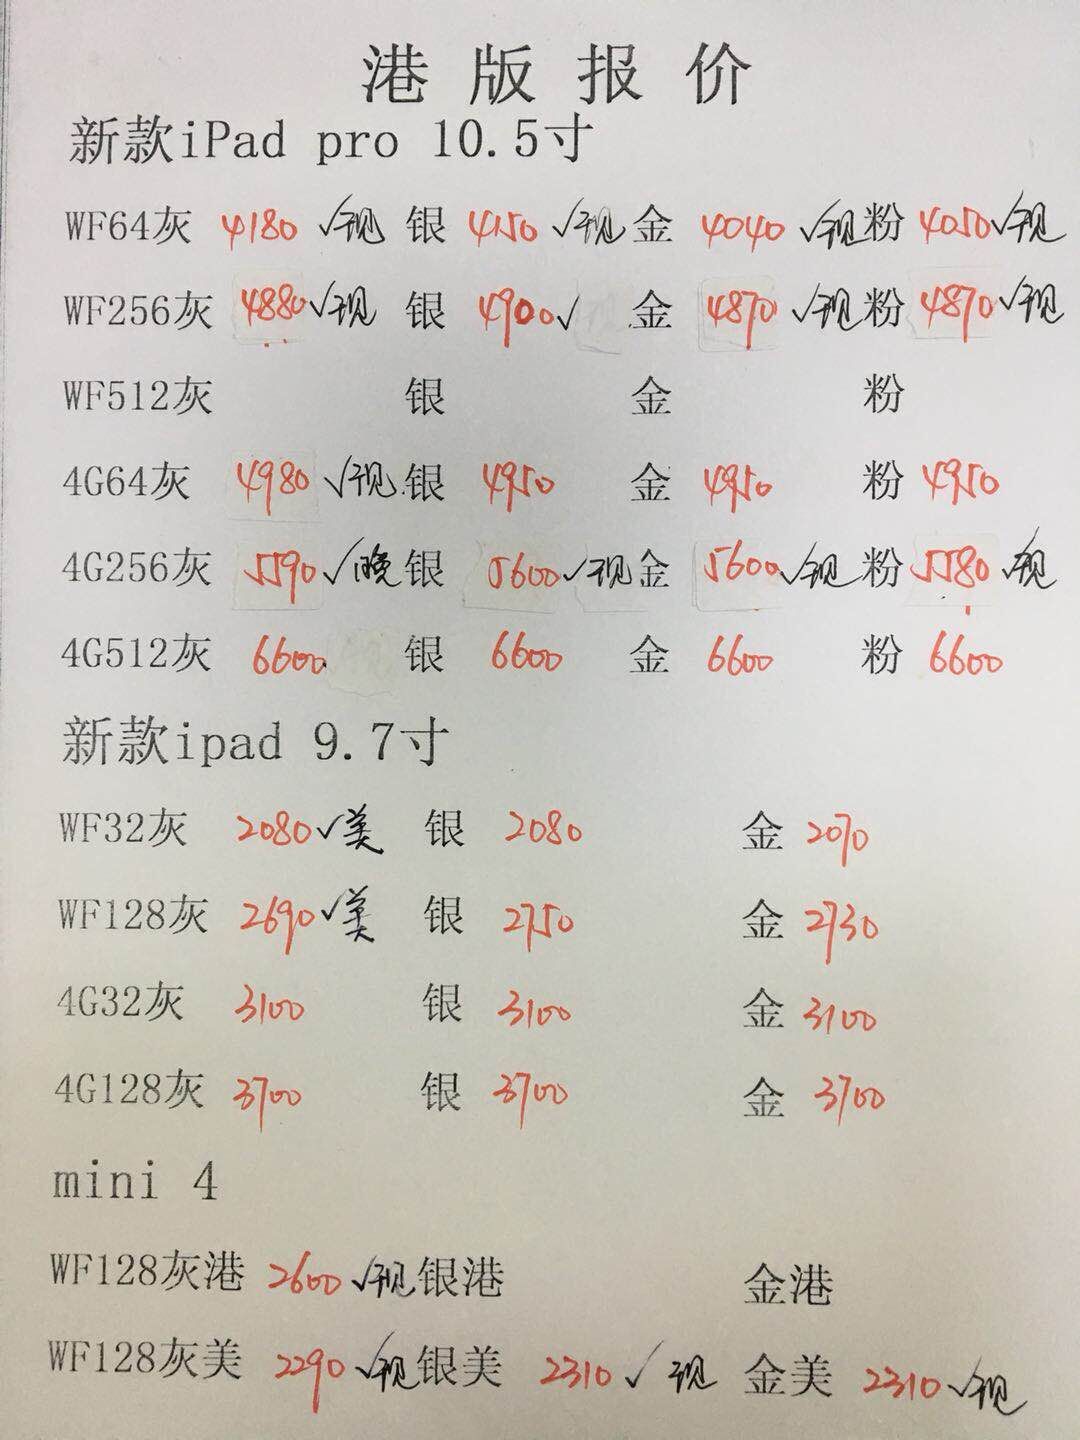 港版报价
新款iPad pro 10.5寸
WF64灰 4180 √现 银 4150 √现 金 4040 √现 粉 4050 √现
WF256灰 4880 √现 银 4900 √ 金 4870 √现 粉 4870 √现
WF512灰 银 金 粉
4G64灰 4980 √现 银 4950 金 4950 粉 4950
4G256灰 5590 √晚 银 5600 √现 金 5600 √现 粉 5580 √现
4G512灰 6600 银 6600 金 6600 粉 6600
新款ipad 9.7寸
WF32灰 2080 √美 银 2080 金 2070
WF128灰 2690 √美 银 2750 金 2730
4G32灰 3100 银 3100 金 3100
4G128灰 3700 银 3700 金 3700
mini 4
WF128灰港 2600 √现 银港 金港
WF128灰美 2290 √现 银美 2310 √ 现 金美 2310 √现